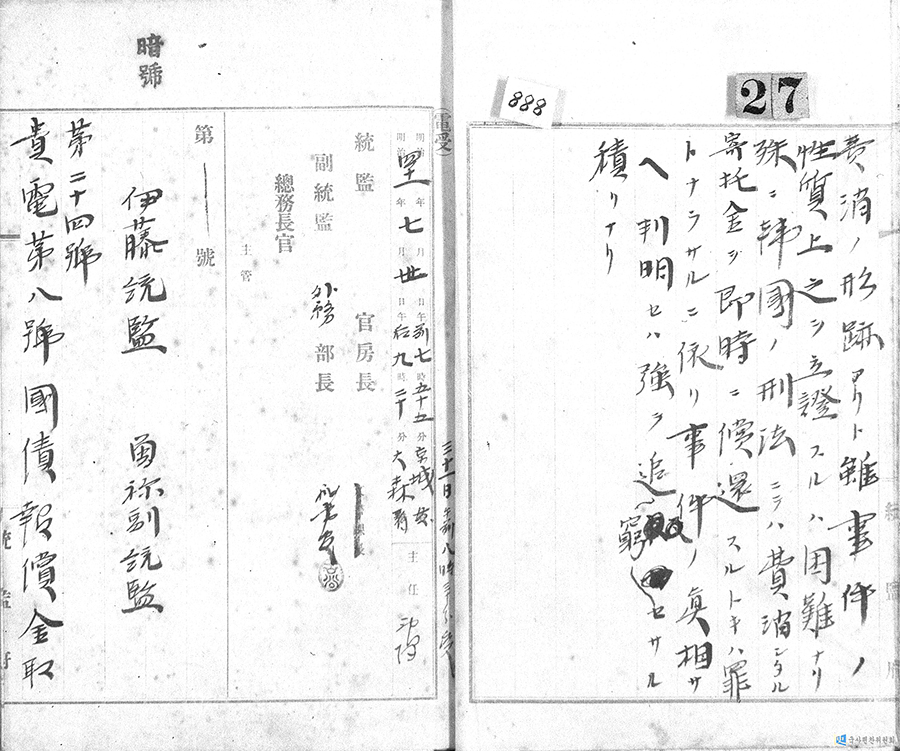 27
888
費消ノ形跡アリト雖事件ノ
性質上之ヲ立證スルハ困難ナリ
殊ニ韓國ノ刑法ニテハ費消シタル
寄托金ヲ即時ニ償還スルトキハ罪
トナラサルニ依リ事件ノ真相サ
ヘ判明セハ強テ追窮セサル
積リナリ
電受
明治四一年七月卅日午前七時五十五分京城發
明治 年 月 日午后九時二十分大森着
三十一日午前八時
主任
統監
官房長
副統監
外務部長
總務長官
主管
第 號
暗號
伊藤統監 曾祢副統監
第二十四號
貴電第八號國債報償金取
統監府
국사편찬위원회